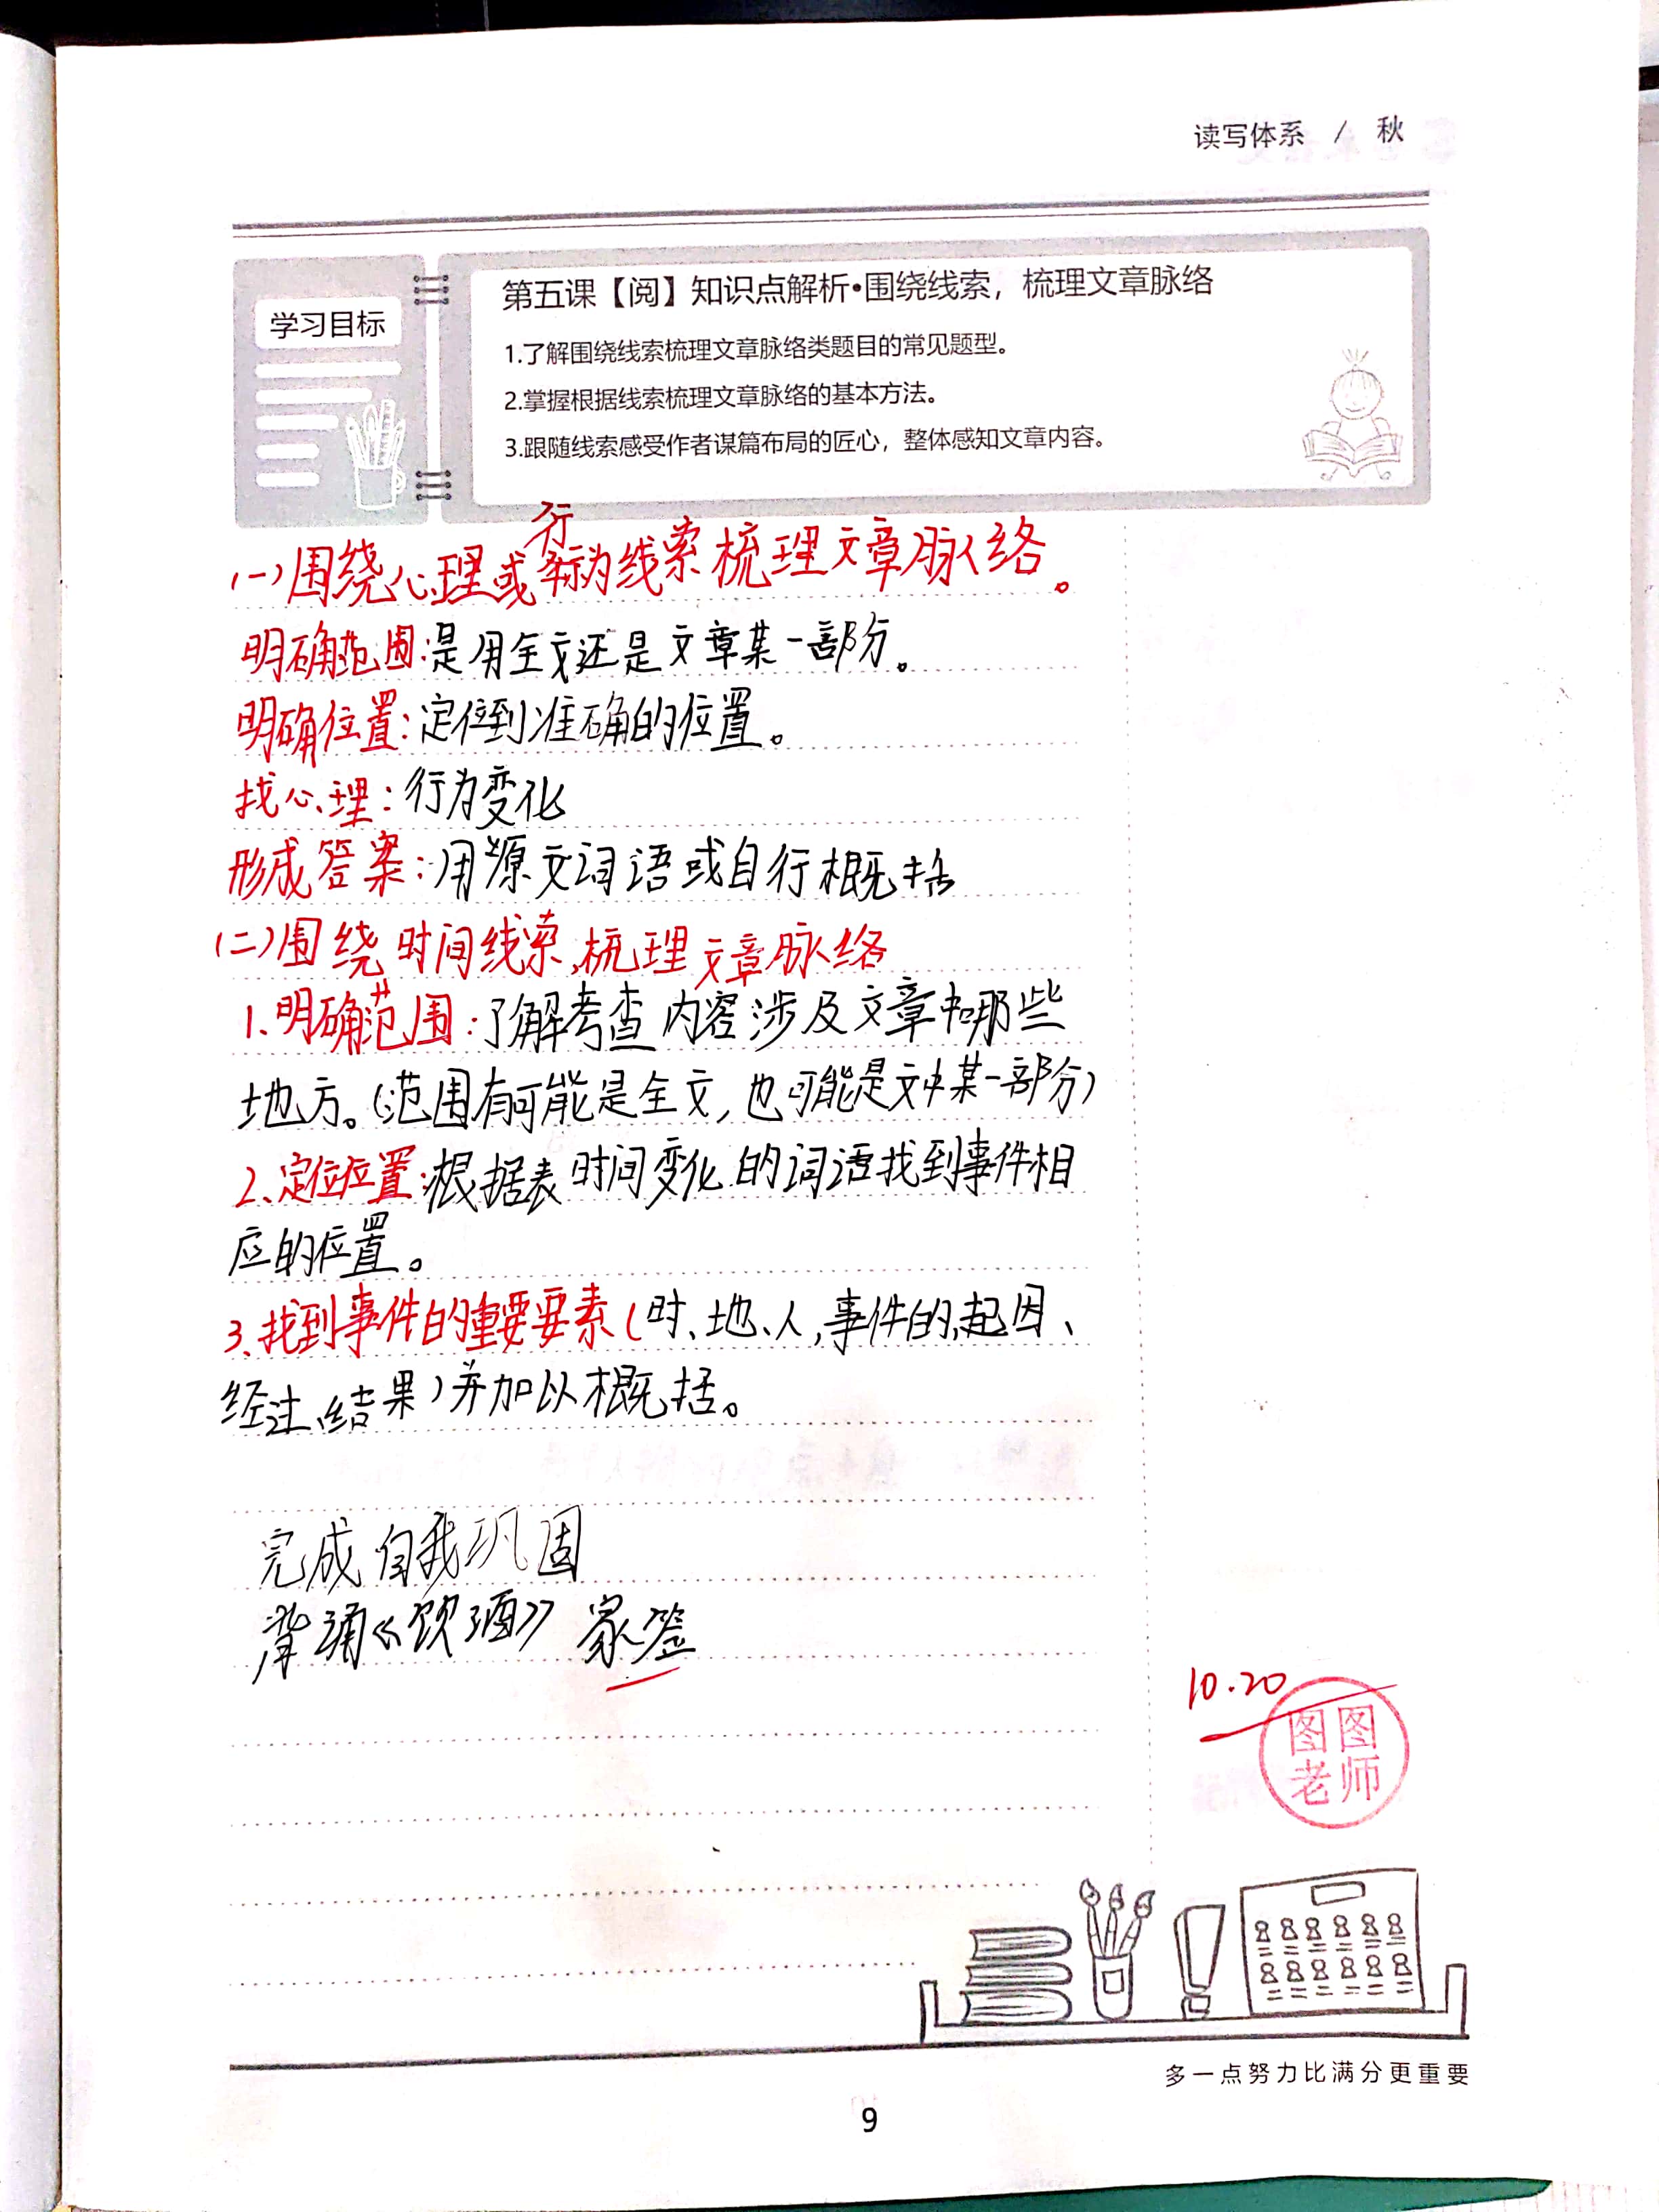 读写体系 / 秋
学习目标
第五课【阅】知识点解析•围绕线索，梳理文章脉络
1.了解围绕线索梳理文章脉络类题目的常见题型。
2.掌握根据线索梳理文章脉络的基本方法。
3.跟随线索感受作者谋篇布局的匠心，整体感知文章内容。
(一)围绕心理或行为线索梳理文章脉络。
明确范围:是用全文还是文章某一部分。
明确位置:定位到准确的位置。
找心理:行为变化
形成答案:用源文词语或自行概括
(二)围绕时间线索,梳理文章脉络
1.明确范围:了解考查内容涉及文章中那些
地方。(范围有可能是全文,也可能是文中某一部分)
2、定位位置:根据表时间变化的词语找到事件相
应的位置。
3、找到事件的重要要素(时、地、人,事件的起因、
经过、结果)并加以概括。
完成自我巩固
背诵《饮酒》 家签
10.20
图图
老师
多一点努力比满分更重要
9